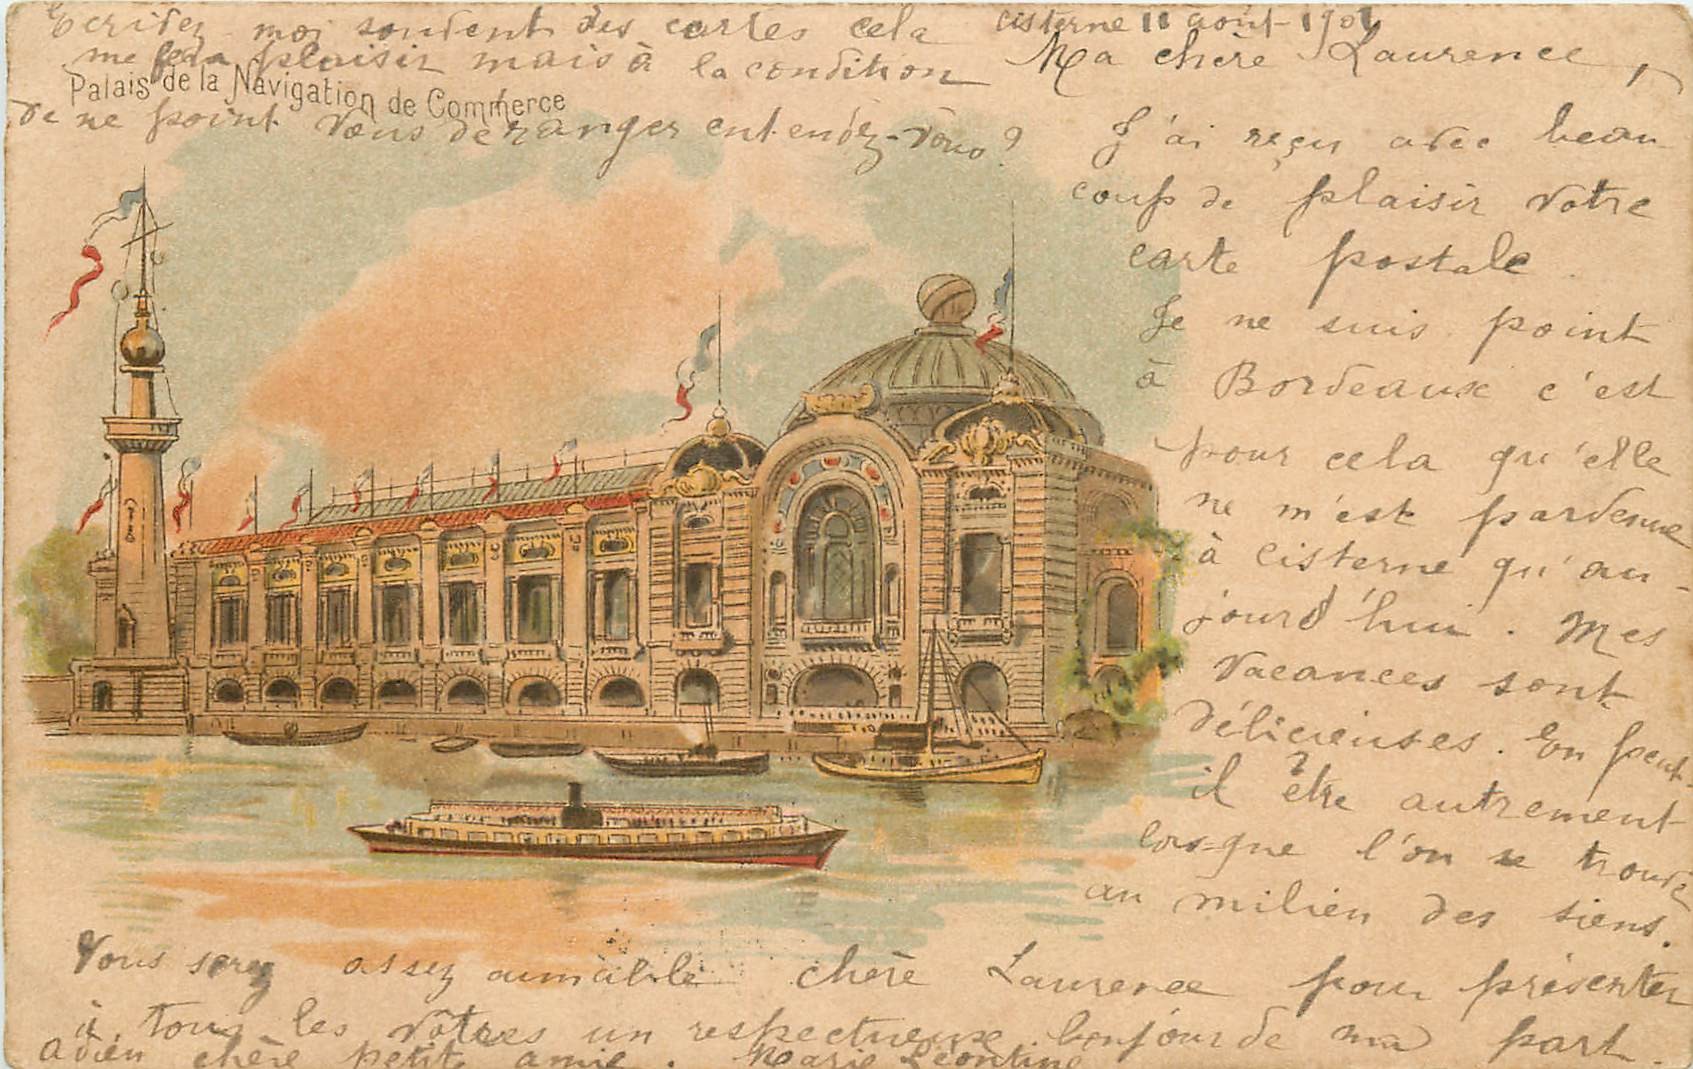 cisterne 11 août 1901
Ma chère Laurence,
J'ai reçu avec beau-
coup de plaisir votre
carte postale.
Je ne suis point
à Bordeaux c'est
pour cela qu'elle
ne m'est parvenue
à cisterne qu'au-
jourd'hui. Mes
vacances sont
délicieuses. En peut-
il être autrement
lorsque l'on se trouve
au milieu des siens.
Vous serez assez aimable chère Laurence pour présenter
à tous les vôtres un respectueux bonjour de ma part.
adieu chère petite amie. Marie Léontine
Ecrivez moi souvent des cartes cela
me fera plaisir mais à la condition
de ne point vous déranger entendez-vous?
Palais de la Navigation de Commerce